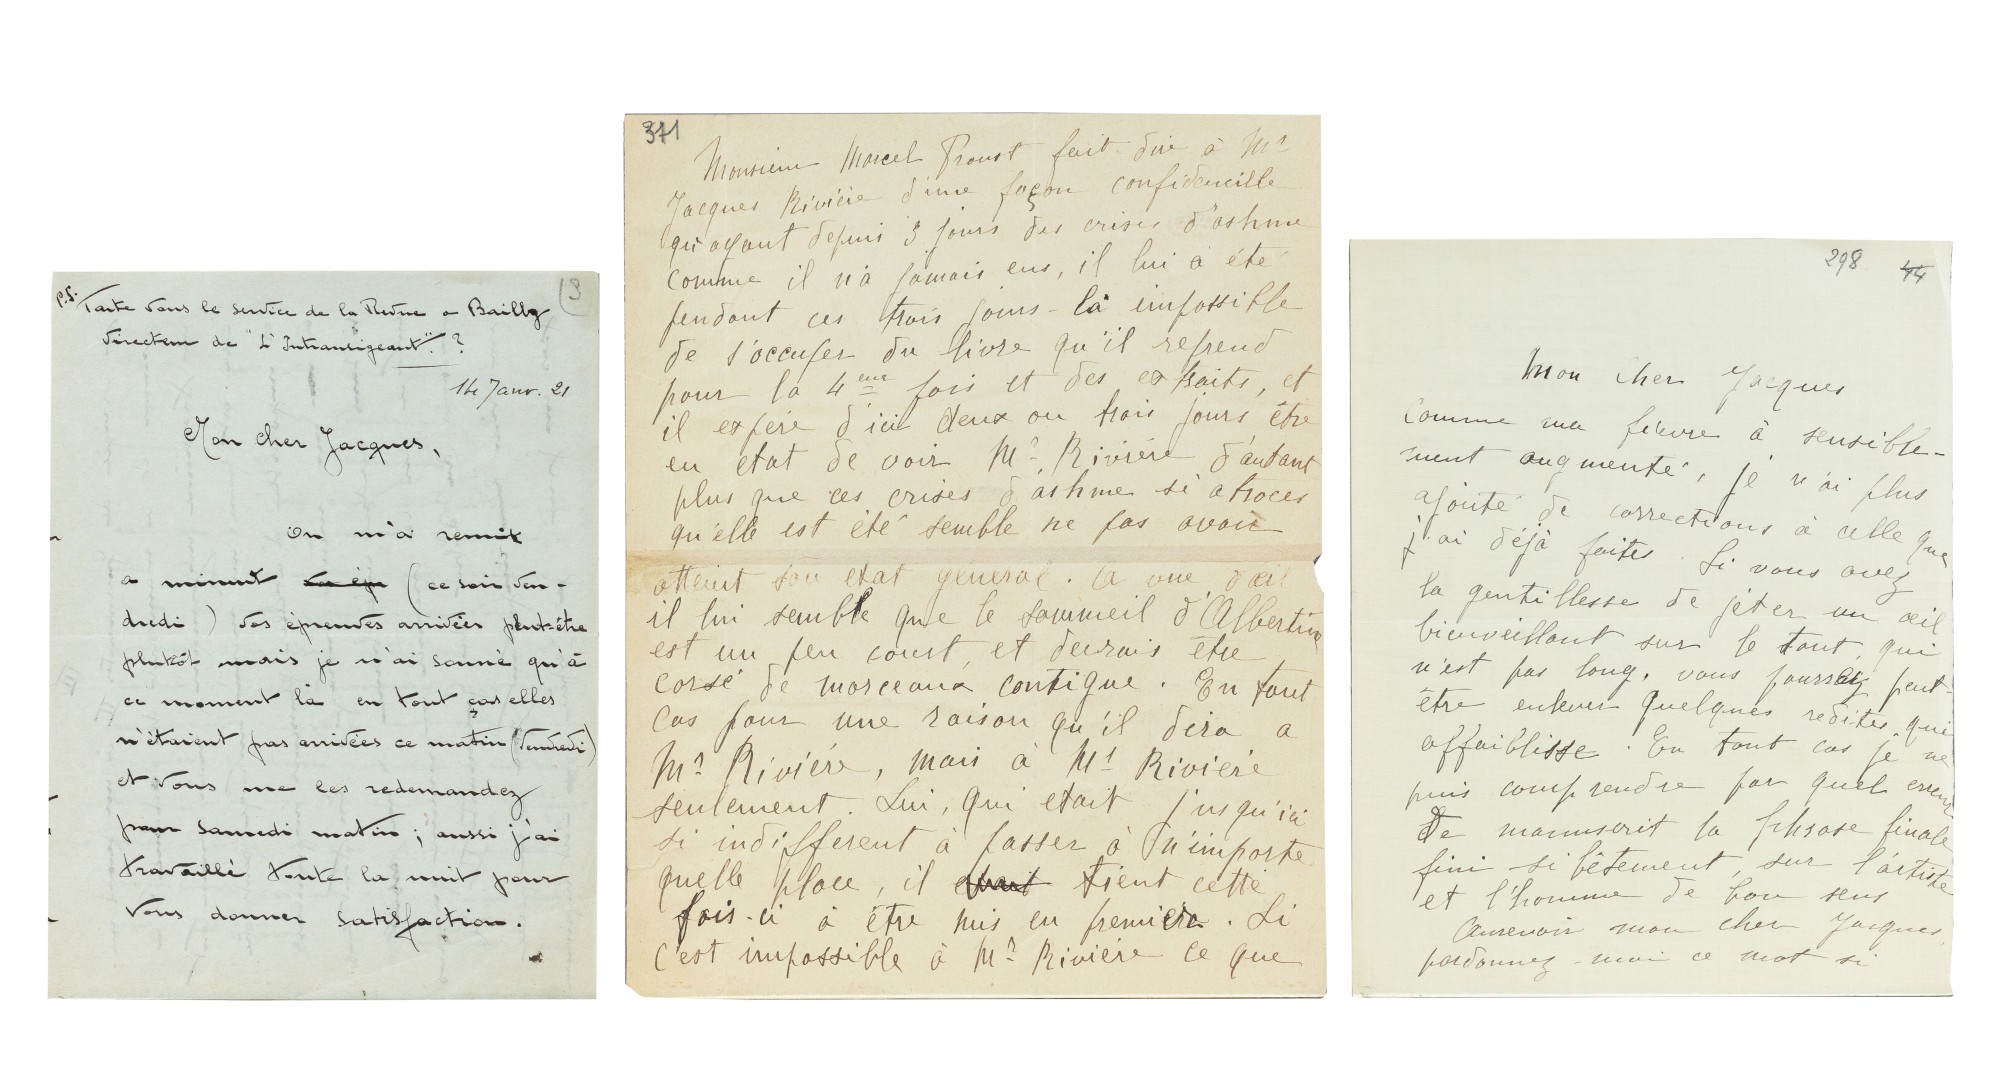 P.S.
3
Faites vous le service de la Revue a Bailby
directeur de "L'Intransigeant". ?
14 Janv. 21
Mon cher Jacques,
On m'a remit
a minuit (ce soir Ven-
dredi) vos épreuves arrivées peut-être
plutôt mais je n'ai sonné qu'à
ce moment là en tout cas elles
n'étaient pas arrivées ce matin (Vendredi)
et vous me les redemandez
pour samedi matin ; aussi j'ai
travaillé toute la nuit pour
vous donner satisfaction.
371
Monsieur Marcel Proust fait dire à Mr
Jacques Rivière d'une façon confidencille
qu'ayant depuis 3 jours des crises d'asthme
comme il n'a jamais eus, il lui à été
pendant ces trois jours-là impossible
de s'occuper du livre qu'il reprend
pour la 4eme fois et des extraits, et
il espére d'ici deux ou trois jours être
en etat de voir Mr Rivière d'autant
plus que ces crises d'asthme si atroces
qu'elle est été semble ne pas avoir
atteint son etat général. A vue d'œil
il lui semble que le sommeil d'Albertine
est un peu court, et devrais être
corsé de morceaux contigue. En tout
cas pour une raison qu'il dira a
Mr Riviére, mais à Mr Riviére
seulement. Lui, qui etait jusqu'ici
si indifferent à passer à n'importe
quelle place, il tient cette
fois-ci à être mis en premier. Si
c'est impossible à Mr Riviére ce que
298 44
Mon cher Jacques
comme ma fièvre à sensible-
ment augmenté, je n'ai plus
ajouté de corrections à celle que
j'ai déjà faites. Si vous avez
la gentillesse de jéter un œil
bienveillant sur le tout, qui
n'est pas long, vous pourrez peut-
être enlever quelques redites qui
affaiblisse. En tout cas je ne
puis comprendre par quel erreur
De manuscrit la phrase finale
fini si bêtement, sur l'artiste
et l'homme de bon sens
Aurevoir mon cher Jacques,
pardonnez-moi ce mot si